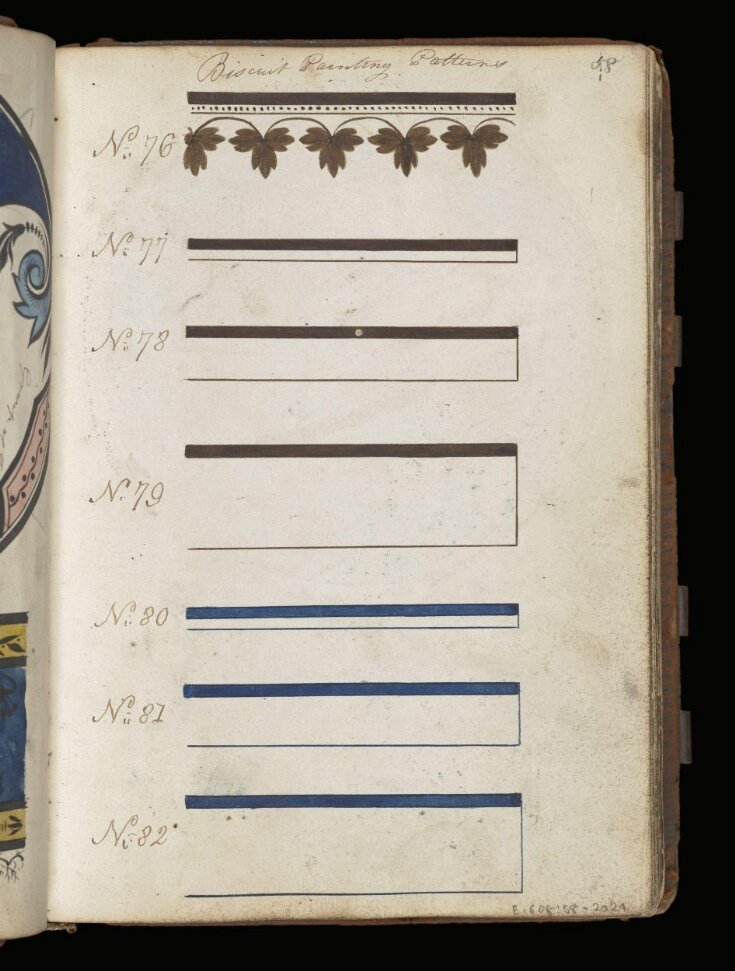 Biscuit Painting Patterns
58
No. 76
No. 77
No. 78
No. 79
No. 80
No. 81
No. 82
E.608:58-2021